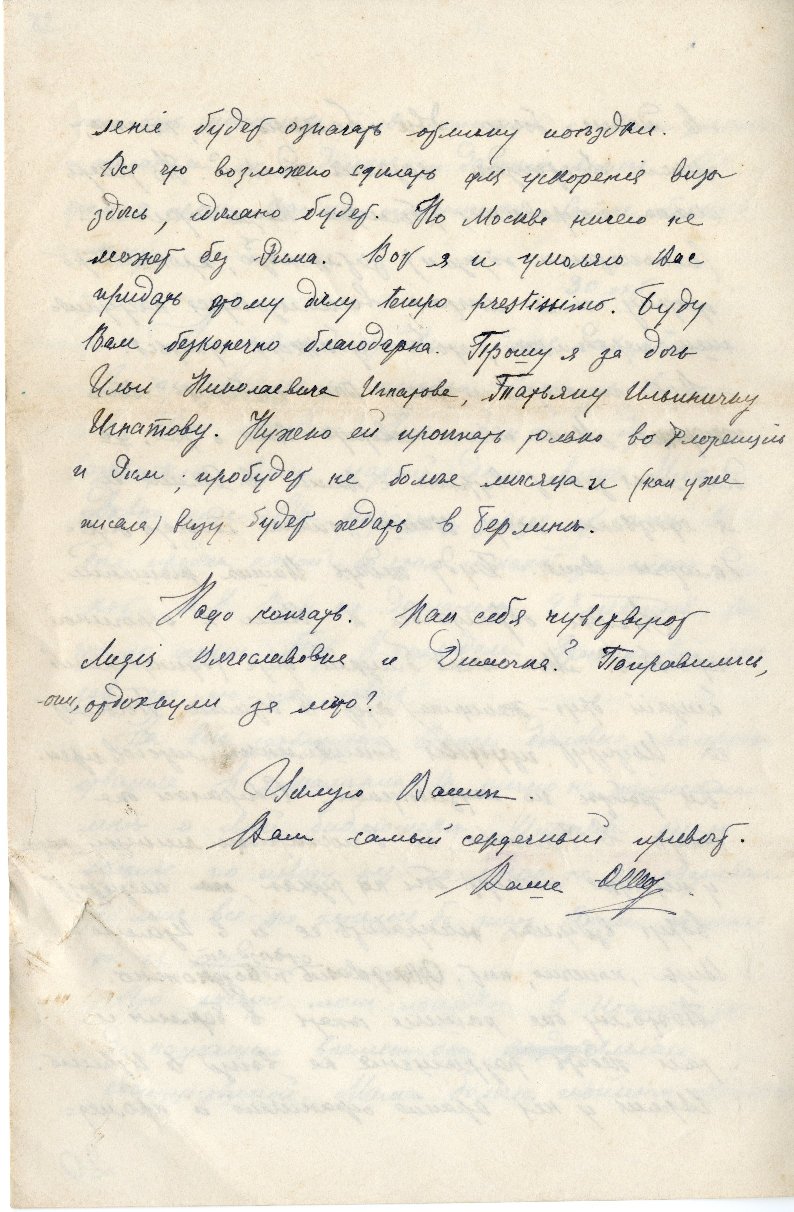 леніе будет означать отмену поѣздки.
Все что возможно сдѣлать для ускоренія визы
здѣсь, сдѣлано будет. Но Москве ничего не
может без Рима. Вот я и умоляю Вас
придать этому дѣлу tempo prestissimo. Буду
Вам безконечно благодарна. Прошу я за дочь
Ильи Николаевича Игнатова, Татьяну Ильиничну
Игнатову. Нужно ей проѣхать только во Флоренцію
и Рим; пробудет не больше мѣсяца и (как уже
писала) визу будет ждать в Берлинѣ.
Надо кончать. Как себя чувствует
Лидія Вячеславовна и Димочка? Поправились,
они, отдохнули за лѣто?
Цѣлую Ваших.
Вам самый сердечный привѣт.
Ваша